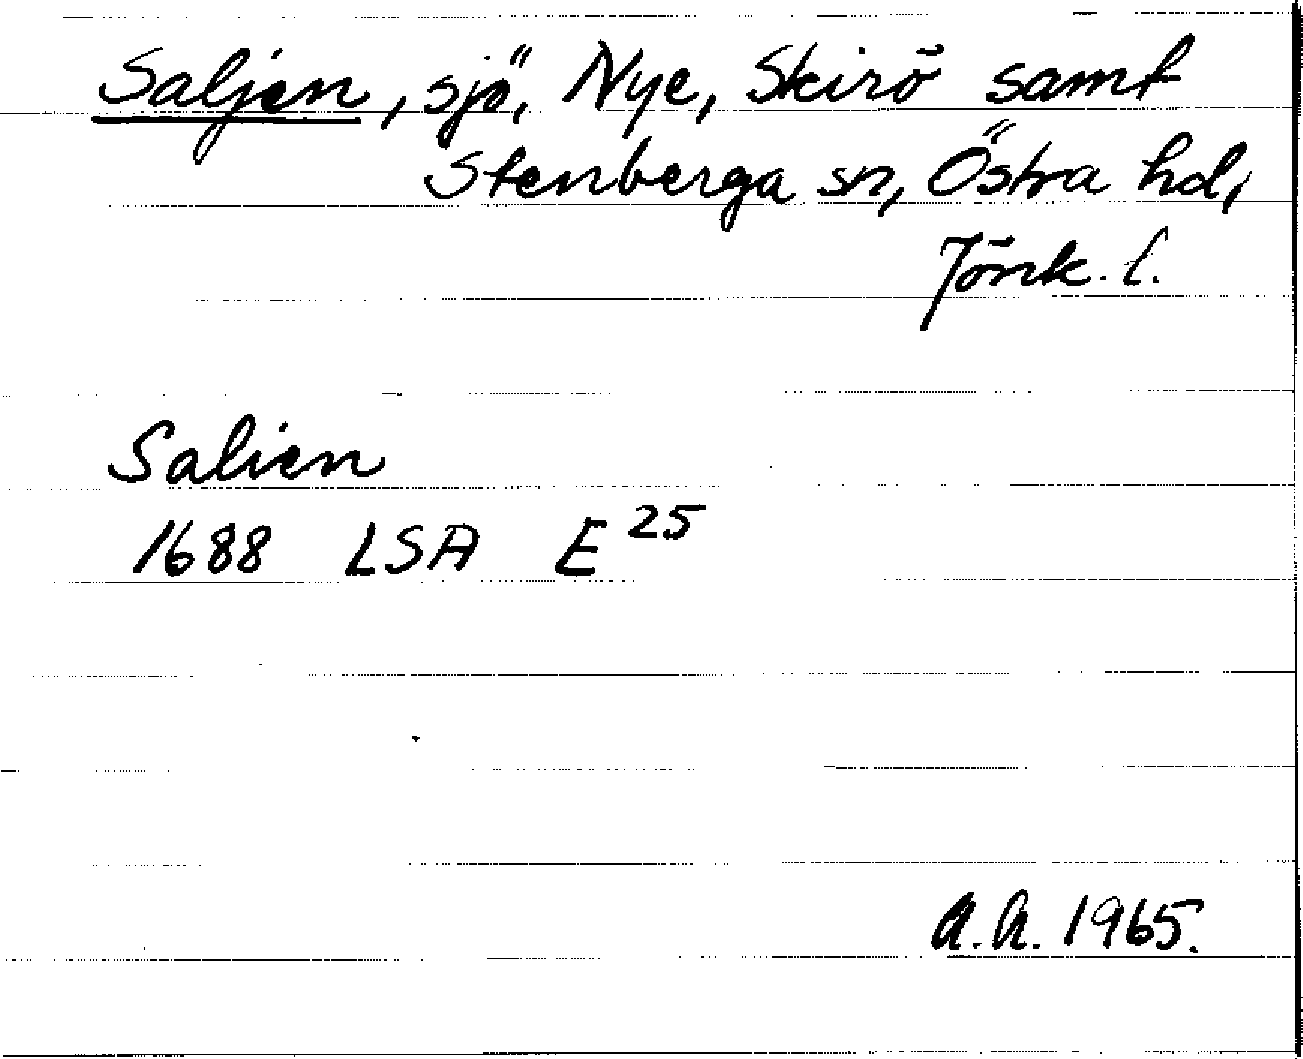 Saljen, sjö, Nye, Skirö samt
Stenberga sn, Östra hd,
Jönk. l.
Salien
1688 LSA E 25
A.A. 1965.